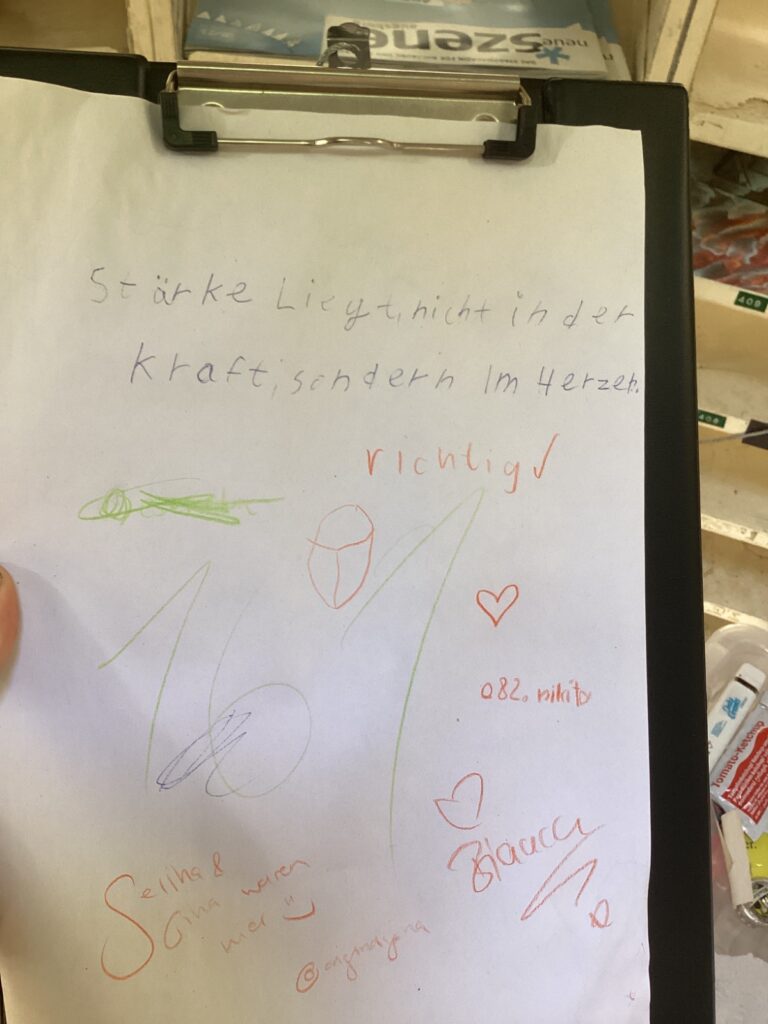 neue
*szene
Stärke Liegt, nicht in der
Kraft, sondern Im Herzen.
richtig ✓
161
082. nikito
Selina &
Gina waren
hier
409
409
Tomato-Ketchup